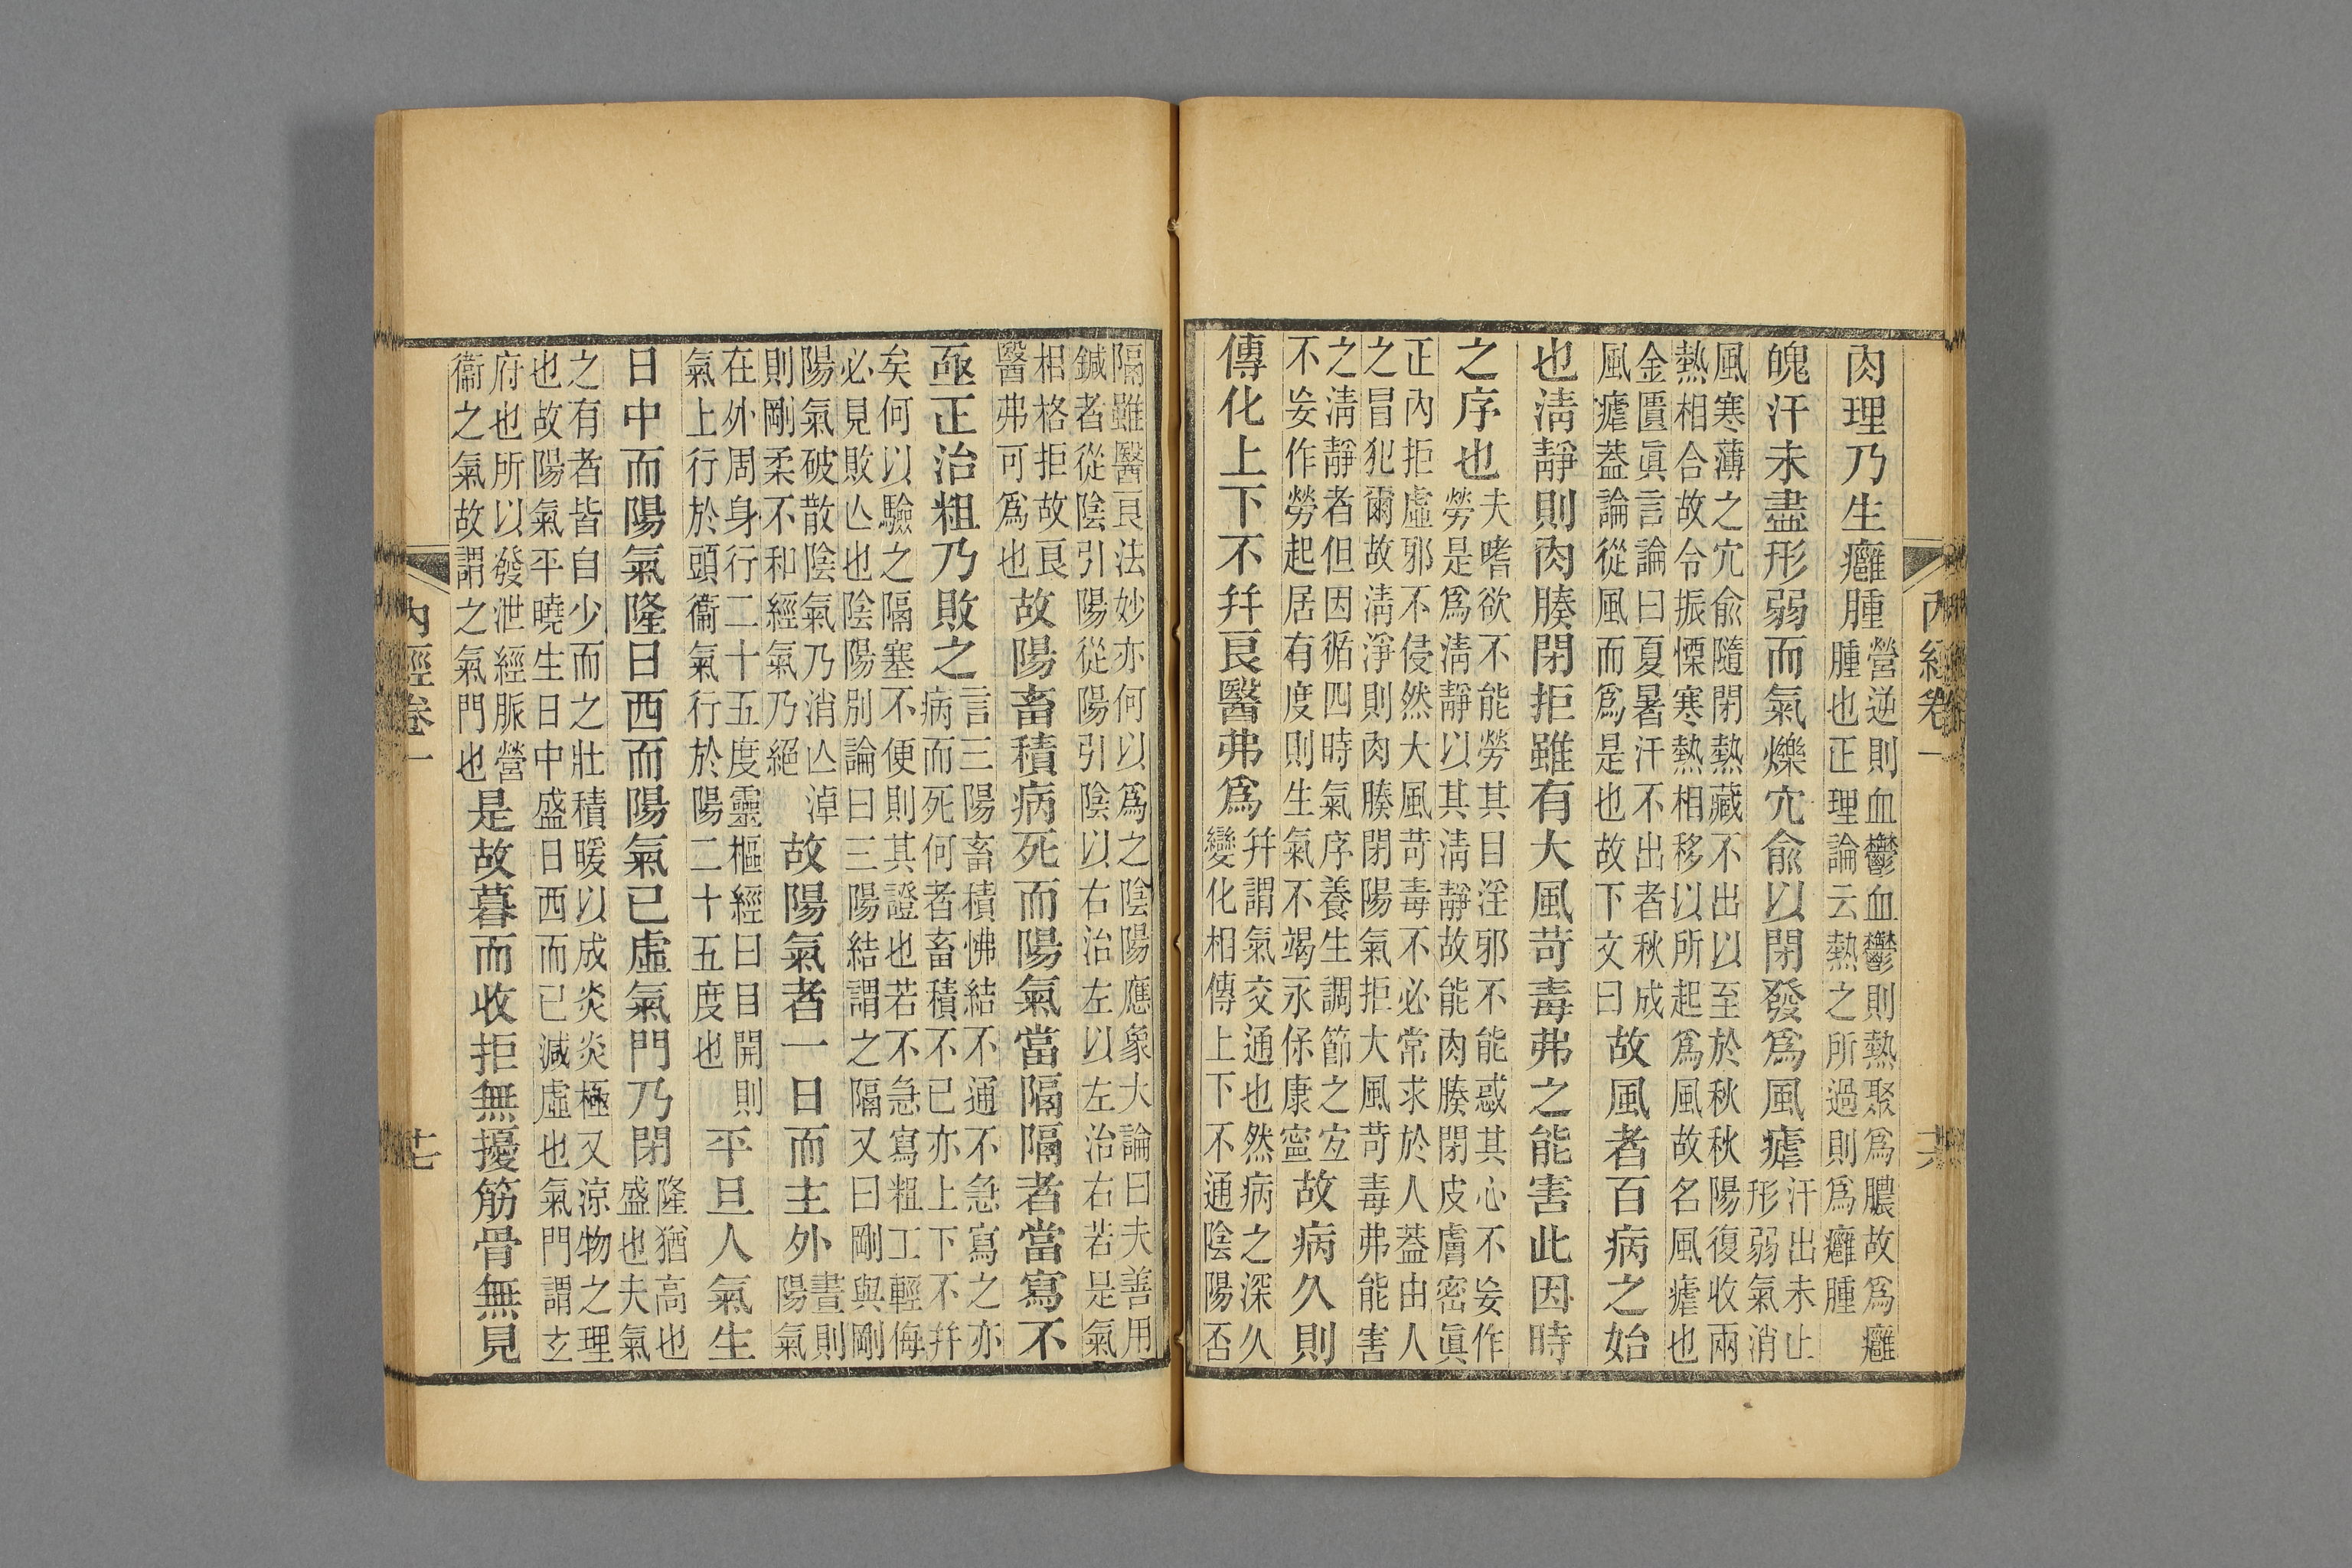 肉理乃生癰腫營逆則血鬱血鬱則熱聚爲膿故爲癰腫也正理論云熱之所過則爲癰腫
魄汗未盡形弱而氣爍穴俞以閉發爲風瘧汗出未止形弱氣消
風寒薄之穴俞隨閉熱藏不出以至於秋秋陽復收兩熱相合故令振慄寒熱相移以所起爲風故名風瘧也
金匱眞言論曰夏暑汗不出者秋成風瘧葢論從風而爲是也故下文曰故風者百病之始
也淸靜則肉腠閉拒雖有大風苛毒弗之能害此因時
之序也夫嗜欲不能勞其目淫邪不能惑其心不妄作勞是爲淸靜以其淸靜故能肉腠閉皮膚密眞
正內拒虛邪不侵然大風苛毒不必常求於人葢由人之冒犯爾故淸淨則肉腠閉陽氣拒大風苛毒弗能害
之淸靜者但因循四時氣序養生調節之宜不妄作勞起居有度則生氣不竭永保康寧故病久則
傳化上下不并良醫弗爲并謂氣交通也然病之深久變化相傳上下不通陰陽否
內經卷一
十六
隔雖醫良法妙亦何以爲之陰陽應象大論曰夫善用鍼者從陰引陽從陽引陰以右治左以左治右若是氣
相格拒故良醫弗可爲也故陽畜積病死而陽氣當隔隔者當寫不
亟正治粗乃敗之言三陽畜積怫結不通不急寫之亦病而死何者畜積不已亦上下不并
矣何以驗之隔塞不便則其證也若不急寫粗工輕侮必見敗亾也陰陽別論曰三陽結謂之隔又曰剛與剛
陽氣破散陰氣乃消亾淖則剛柔不和經氣乃絕故陽氣者一日而主外晝則陽氣
在外周身行二十五度靈樞經曰目開則氣上行於頭衞氣行於陽二十五度也平旦人氣生
日中而陽氣隆日西而陽氣已虛氣門乃閉隆猶高也盛也夫氣
之有者皆自少而之壯積暖以成炎炎極又涼物之理也故陽氣平曉生日中盛日西而已減虛也氣門謂玄
府也所以發泄經脈營衞之氣故謂之氣門也是故暮而收拒無擾筋骨無見
內經卷一
十七